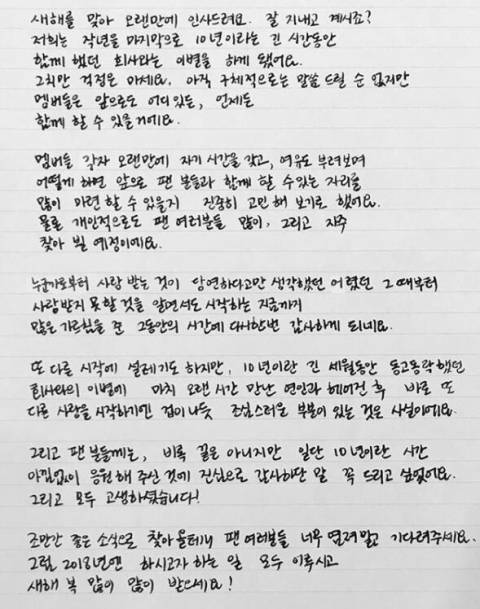 새해를 맞아 오랜만에 인사드려요. 잘 지내고 계시죠?
저희는 작년을 마지막으로 10년이라는 긴 시간동안
함께 했던 회사와는 이별을 하게 됐어요.
그치만 걱정은 마세요. 아직 구체적으로는 말씀 드릴 순 없지만
멤버들은 앞으로도 어디 있든, 언제든
함께 할 수 있을거에요.
멤버들 각자 오랜만에 자기 시간을 갖고, 여유도 부려보며
어떻게 하면 앞으로 팬 분들과 함께 할 수 있는 자리를
많이 마련 할 수 있을지 진중히 고민 해 보기로 했어요.
물론 개인적으로도 팬 여러분들 많이, 그리고 자주
찾아 뵐 예정이에요.
누군가로부터 사랑 받는 것이 당연하다고만 생각했던 어렸던 그 때부터
사랑받지 못할 것을 알면서도 시작하는 지금까지
많은 가르침을 준 그동안의 시간에 다시한번 감사하게 되네요.
또 다른 시작에 설레기도 하지만, 10년이란 긴 세월동안 동고동락했던
회사와의 이별에 마치 오랜 시간 만난 연인과 헤어진 후 바로 또
다른 사랑을 시작하기엔 겁이 나듯 조심스러운 부분이 있는 것은 사실이에요.
그리고 팬 분들께는, 비록 끝은 아니지만 일단 10년이란 시간
아낌없이 응원해 주신 것에 진심으로 감사하단 말 꼭 드리고 싶었어요.
그리고 모두 고생하셨습니다!
조만간 좋은 소식으로 찾아올테니 팬 여러분들 너무 염려말고 기다려주세요.
그럼 2018년엔 하시고자 하는 일 모두 이루시고
새해 복 많이 많이 받으세요!